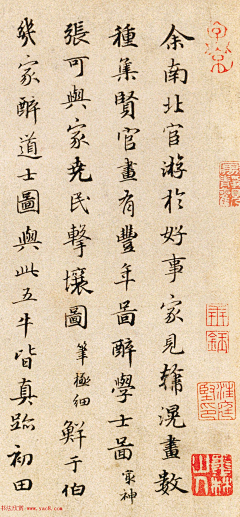 余南北宦游於好事家見韓滉畫數
種集賢官畫有豐年啚醉學士啚最神
張可與家堯民擊壤圖筆極細鮮于伯
幾家醉道士圖與此五牛皆真跡初田